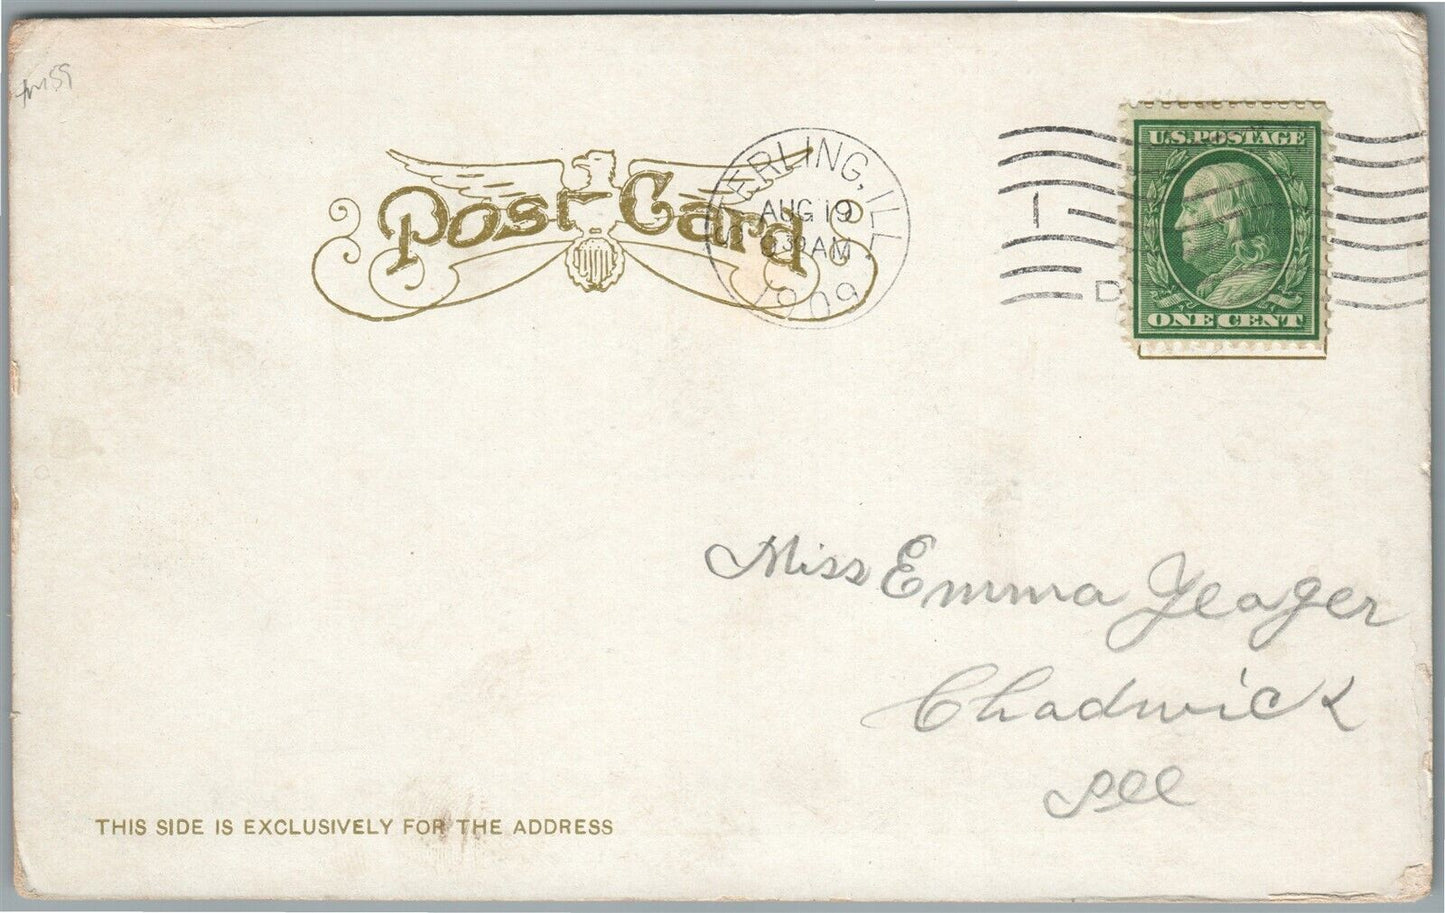 Post Card
STERLING, ILL.
AUG 19
9 30 AM
1909
1
D
U.S. POSTAGE
ONE CENT
Miss Emma Yeager
Chadwick
Ill
THIS SIDE IS EXCLUSIVELY FOR THE ADDRESS